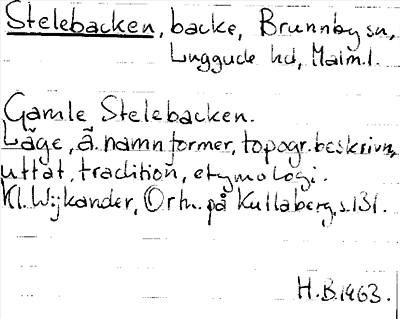 Stelebacken, backe, Brunnby sn,
Luggude hd, Malm.l.
Gamle Stelebacken.
Läge, ä. namnformer, topogr. beskrivn,
uttal, tradition, etymologi.
Kl. Wijkander, Ortn. på Kullaberg, s. 131.
H.B. 1963.